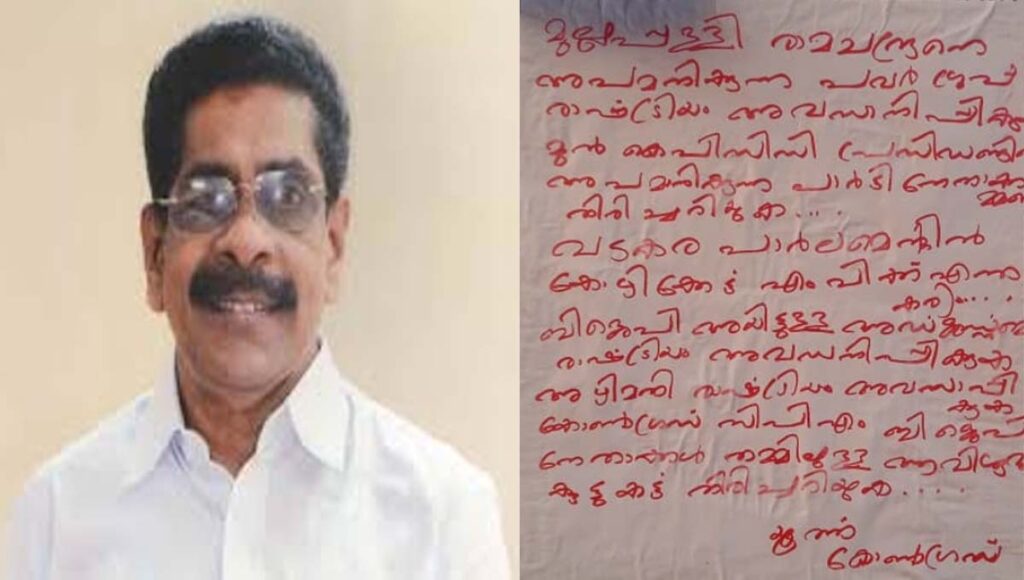 മുല്ലപ്പള്ളി രാമചന്ദ്രനെ
അപമാനിക്കുന്ന പവർ ഗ്രൂപ്പ്
രാഷ്ട്രീയം അവസാനിപ്പിക്കുക
മുൻ കെപിസിസി പ്രസിഡണ്ടിനെ
അപമാനിക്കുന്ന പാർടി നേതാക്കന്മാരെ
തിരിച്ചറിയുക....
വടകര പാർലമെൻ്റിൽ
കോഴിക്കോട് എംപിക്ക് എന്താ
കാര്യം....
ബിജെപി ആയിട്ടുള്ള
രാഷ്ട്രീയം അവസാനിപ്പിക്കുക
അഴിമതി രാഷ്ട്രീയം അവസാനിപ്പി
ക്കുക
കോൺഗ്രസ് സിപിഎം ബിജെപി
നേതാക്കൾ തമ്മിലുള്ള അവിശുദ്ധ
കൂട്ടുകെട്ട് തിരിച്ചറിയുക....
കോൺഗ്രസ്